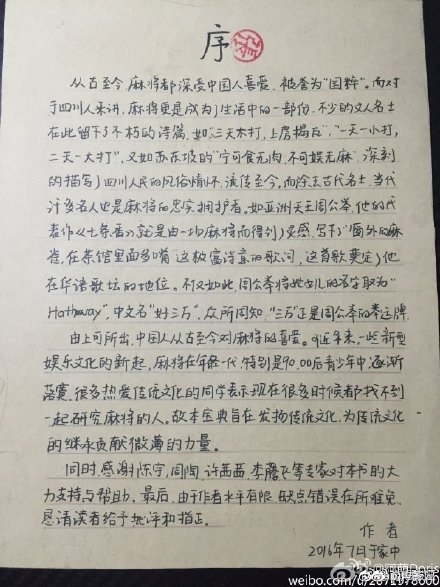 序
从古至今,麻将都深受中国人喜爱,被誉为“国粹”。而对
于四川人来讲,麻将更是成为了生活中的一部份,不少的文人名士
在此留下了不朽的诗篇,如“三天不打,上房揭瓦”,“一天一小打,
二天一大打”,又如苏东坡的“宁可食无肉,不可娱无麻”,深刻
的描写了四川人民的风俗情怀,流传至今。而除去古代名士,当代
许多名人也是麻将的忠实拥护者。如亚洲天王周公举,他的代
表作《七条香》就是由一场麻将而得到了灵感,写下了“窗外的麻
雀,在茶馆里面多嘴”这极富诗意的歌词,这首歌奠定了他
在华语歌坛的地位。不仅如此,周公举将他女儿的名字取为“
Hathaway”,中文名“好三万”,众所周知,“三万”正是周公举的幸运牌。
由上可所出,中国人从古至今对麻将的喜爱。可近年来,一些新型
娱乐文化的新起,麻将在年轻一代,特别是90,00后青少年中,逐渐
很多热爱传统文化的同学表示现在很多时候都找不到
一起研究麻将的人。故本宝典旨在发扬传统文化,为传统文化
的继承贡献微薄的力量。
同时,感谢陈宇,周陶,许茜茜,李蘑飞等专家对本书的大
力支持与帮助。最后,由于作者水平有限,缺点错误在所难免,
恳请读者给予批评和指正。
作者
2016年7月于家中
weibo.com/u/2871978600